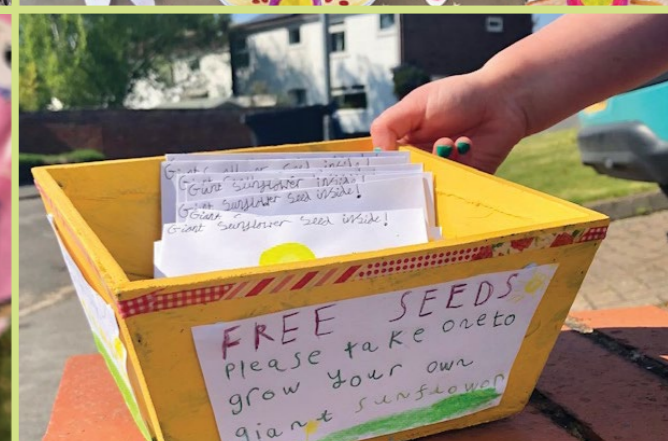 Giant Sunflower seed inside!
Giant Sunflower inside!
Giant Sunflower Seed inside!
Giant
Giant Sunflower Seed inside!
FREE SEEDS
Please take one to
grow your own
giant sunflower